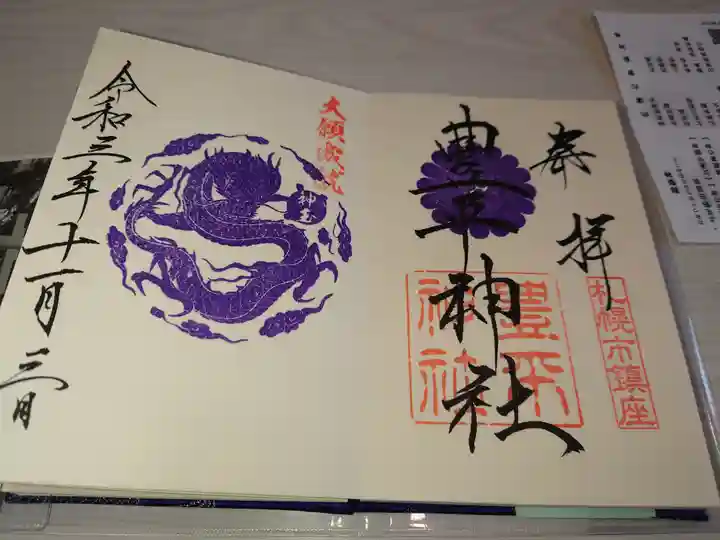 奉拝
札幌市鎮座
豊平神社
豊平
神社
大願成就
神玉
令和三年十一月三日